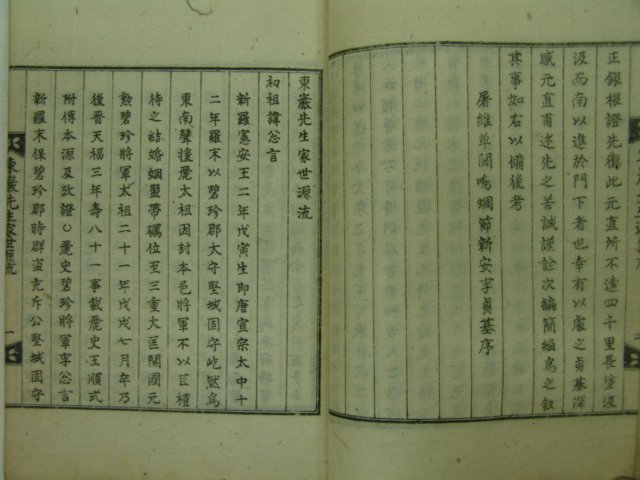 正銀根證先復此元直所不遠四千里長塗汲
汲而南以進於門下者也幸有以處之貞基深
感元直甫述先之苦誠謹詮次編簡繼爲之叙
其事如右以備後考
屠維單閼鳴蜩節新安李貞基序
東巖先生家世源流
初祖諱忩言
新羅憲安王二年戊寅生即唐宣宗太中十
二年羅末以碧珍郡太守堅城固守屹然爲
東南聲援麗太祖因封本邑將軍不以臣禮
待之結婚姻盟帶礪位至三重大匡開國元
勲碧珍將軍太祖二十一年戊戌七月卒乃
後晋天福三年壽八十一事載麗史王順式
附傳本源及攷證○麗史碧珍將軍李忩言
新羅末保碧珍郡時群盜充斥公堅城固守
東巖先生家世源流
一